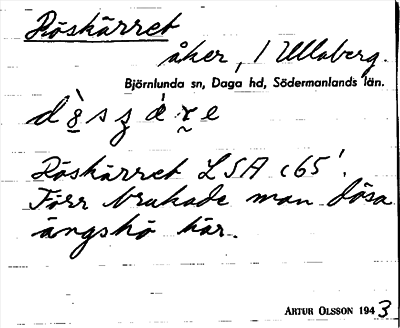 Döskärret
åker, 1 Ullaberg.
Björnlunda sn, Daga hd, Södermanlands län.
Döskärret LSA c65'.
Förr brukade man dösa
ängshö här.
ARTUR OLSSON 1943